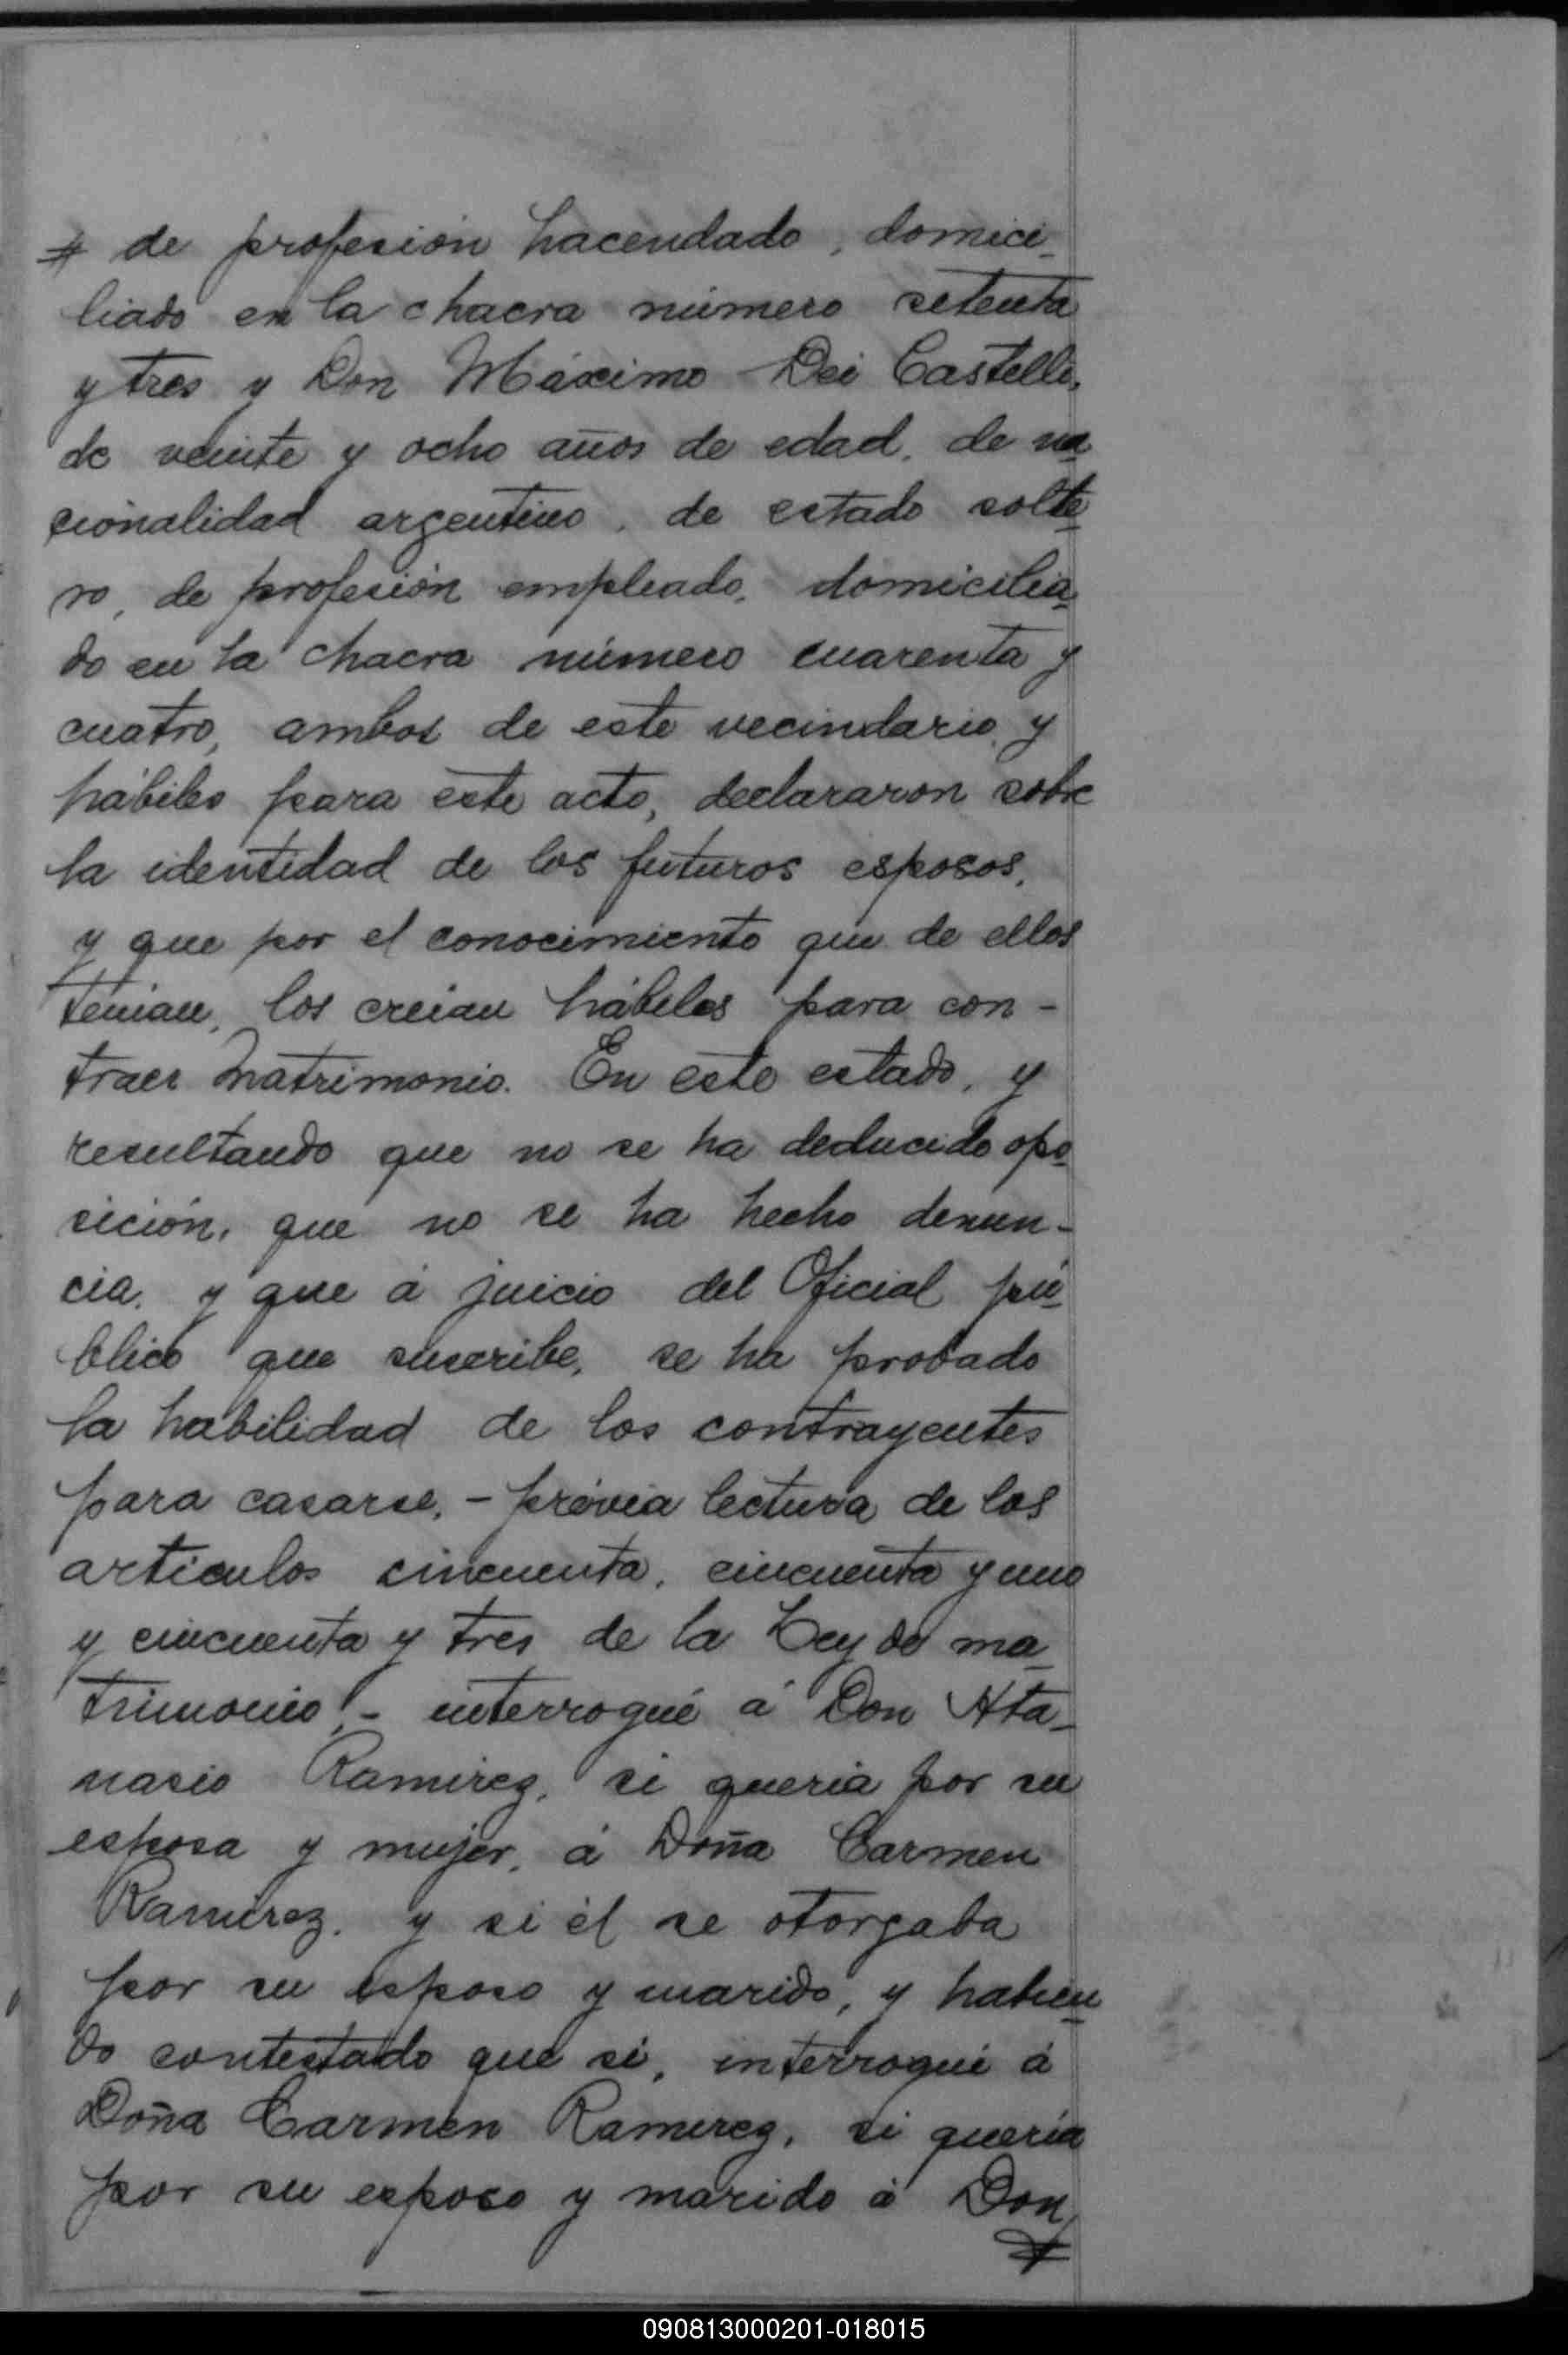 # de profesión hacendado, domici_
liado en la chacra número setenta
y tres y Don Máximo Dei Castelli,
de veinte y ocho años de edad, de na_
cionalidad argentino, de estado solte_
ro, de profesión empleado, domicilia_
do en la chacra número cuarenta y
cuatro, ambos de este vecindario, y
hábiles para este acto, declararon sobre
la identidad de los futuros esposos,
y que por el conocimiento que de ellos
tenían, los creian hábiles para con-
traer matrimonio. En este estado, y
resultando que no se ha deducido opo_
sición, que no se ha hecho denun-
cia, y que á juicio del Oficial pú_
blico que suscribe, se ha probado
la habilidad de los contrayentes
para casarse, - prévia lectura de los
artículos cincuenta, cincuenta y uno
y cincuenta y tres de la Ley de ma_
trimonio, - interrogué á Don Ata_
nasio Ramirez, si queria por su
esposa y mujer, á Doña Carmen
Ramírez, y si él se otorgaba
por su esposo y marido, y habien_
do contestado que si, interrogué á
Doña Carmen Ramirez, si quería
por su esposo y marido á Don
#
090813000201-018015